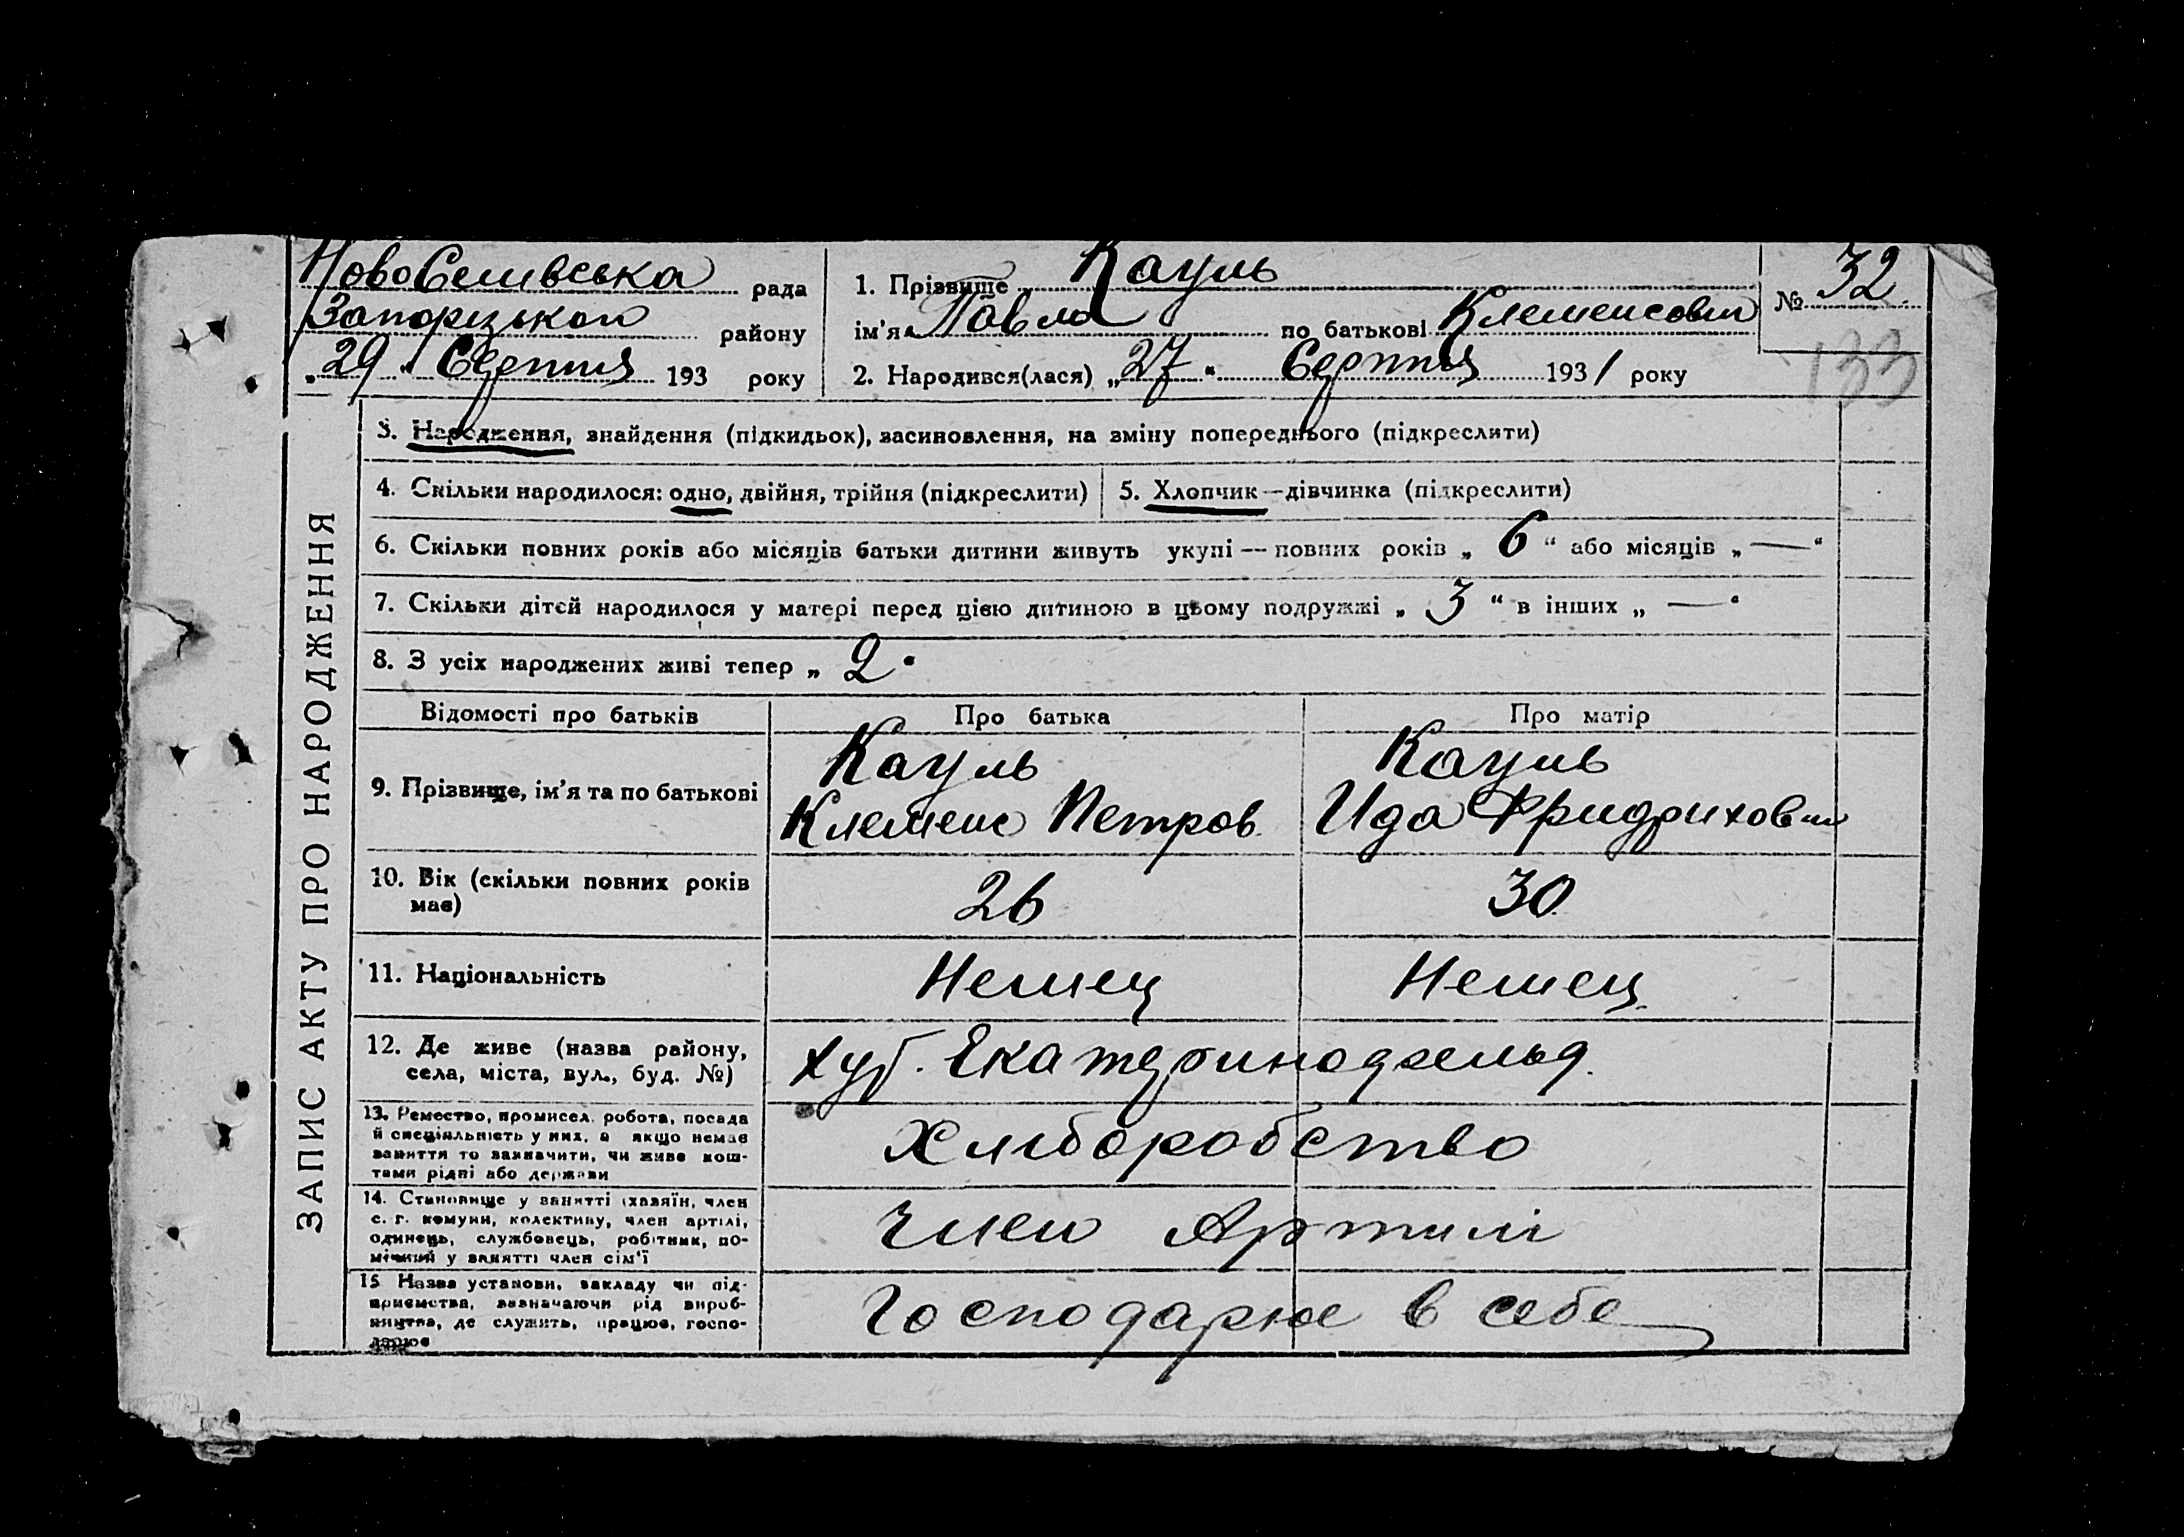 НовоСелівська рада
Запорізького району
„29" Серпня 193 року
1. Прізвище Кауль
ім'я Павло по батькові Клеменсович
№ 32
133
2. Народився(лася) „27" Серпня 1931 року
ЗАПИС АКТУ ПРО НАРОДЖЕННЯ
3. Народження, знайдення (підкидьок), засиновлення, на зміну попереднього (підкреслити)
4. Скільки народилося: одно, двійня, трійня (підкреслити)
5. Хлопчик—дівчинка (підкреслити)
6. Скільки повних років або місяців батьки дитини живуть укупі — повних років „ 6 " або місяців „ — "
7. Скільки дітей народилося у матері перед цією дитиною в цьому подружжі „ 3 " в інших „ — "
8. З усіх народжених живі тепер „ 2 "
Відомості про батьків
Про батька
Про матір
9. Прізвище, ім'я та по батькові
Кауль
Клеменс Петров.
Кауль
Ида Фридрихов
10. Вік (скільки повних років
має)
26
30
11. Національність
Немец
Немец
12. Де живе (назва району,
села, міста, вул., буд. №)
хут. Екатеринодхельд.
13. Ремество, промисел, робота, посада
й спеціяльність у них, а якщо немає
заняття то зазначити, чи живе кош-
тами рідні або держави
Хліборобство
14. Становище у занятті (хазяїн, член
с.-г. комуни, колективу, член артілі,
одинець, службовець, робітник, по-
мічний у занятті член сім'ї
член Артилі
15 Назва установи, закладу чи під-
приємства, зазначаючи рід вироб-
ництва, де служить, працює, госпо-
дарює
Господарює в себе